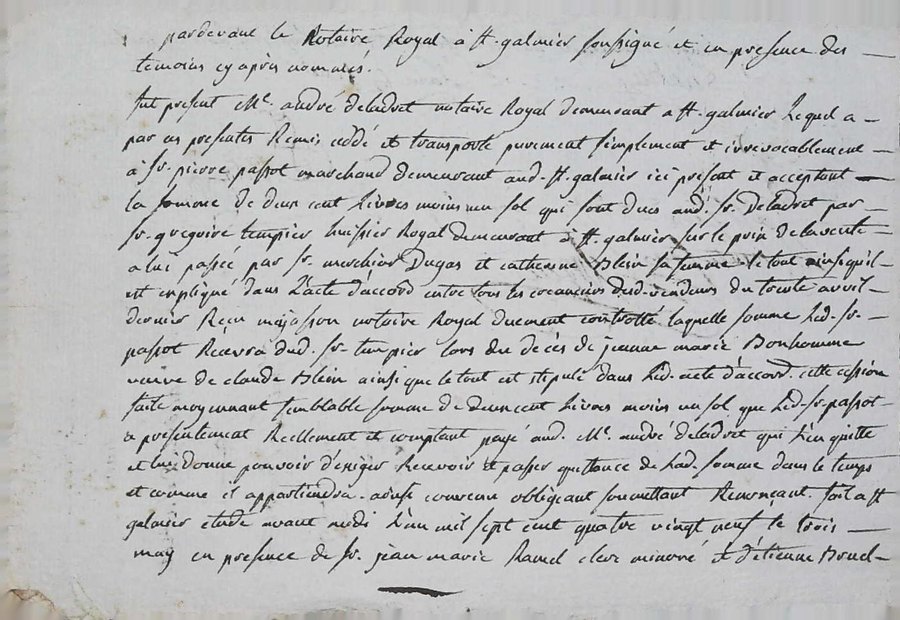 pardevant le Notaire Royal à St. galmier soussigné et en presence des
temoins cy après nommés.
fut present Me. andré deladret notaire Royal demeurant a St. galmier Lequel a
par ces presentes Remis cedé et transporté purement simplement et irrevocablement
à Sr. pierre passot marchand demeurant aud. St. galmier ici present et acceptant
la somme de deux cent Livres moins un sol qui sont dues aud. Sr. Deladret par
Sr. gregoire tempier huissier Royal demeurant à St. galmier sur le prix de la vente
a lui passée par Sr. merchior Dugas et catherine Blein sa femme le tout ainsi quil
est expliqué dans L'acte d'accord entre tous les creanciers desd. vendeurs du trente avril
dernier Reçu majasson notaire Royal duement controllé laquelle somme Led. Sr.
passot Recevra dud. Sr. tempier lors du decès de jeanne marie Bonhomme
veuve de claude Blein ainsi que le tout est stipulé dans Led. acte d'accord. cette cession
faite moyennant semblable somme de deux cent Livres moins un sol que Led. Sr. passot
a presentement Reellement et comptant payé aud. Me. andré deladret qui L'en quitte
et lui donne pouvoir d'exiger Recevoir et passer quittance de Lad. somme dans le temps
et comme il appartiendra. ainsi convenu obligeant soumettant Renoncant. fait a St
galmier etude avant midi L'an mil sept cent quatre vingt neuf le trois
may en presence de Sr. jean marie Ramel clerc minoré et d'étienne